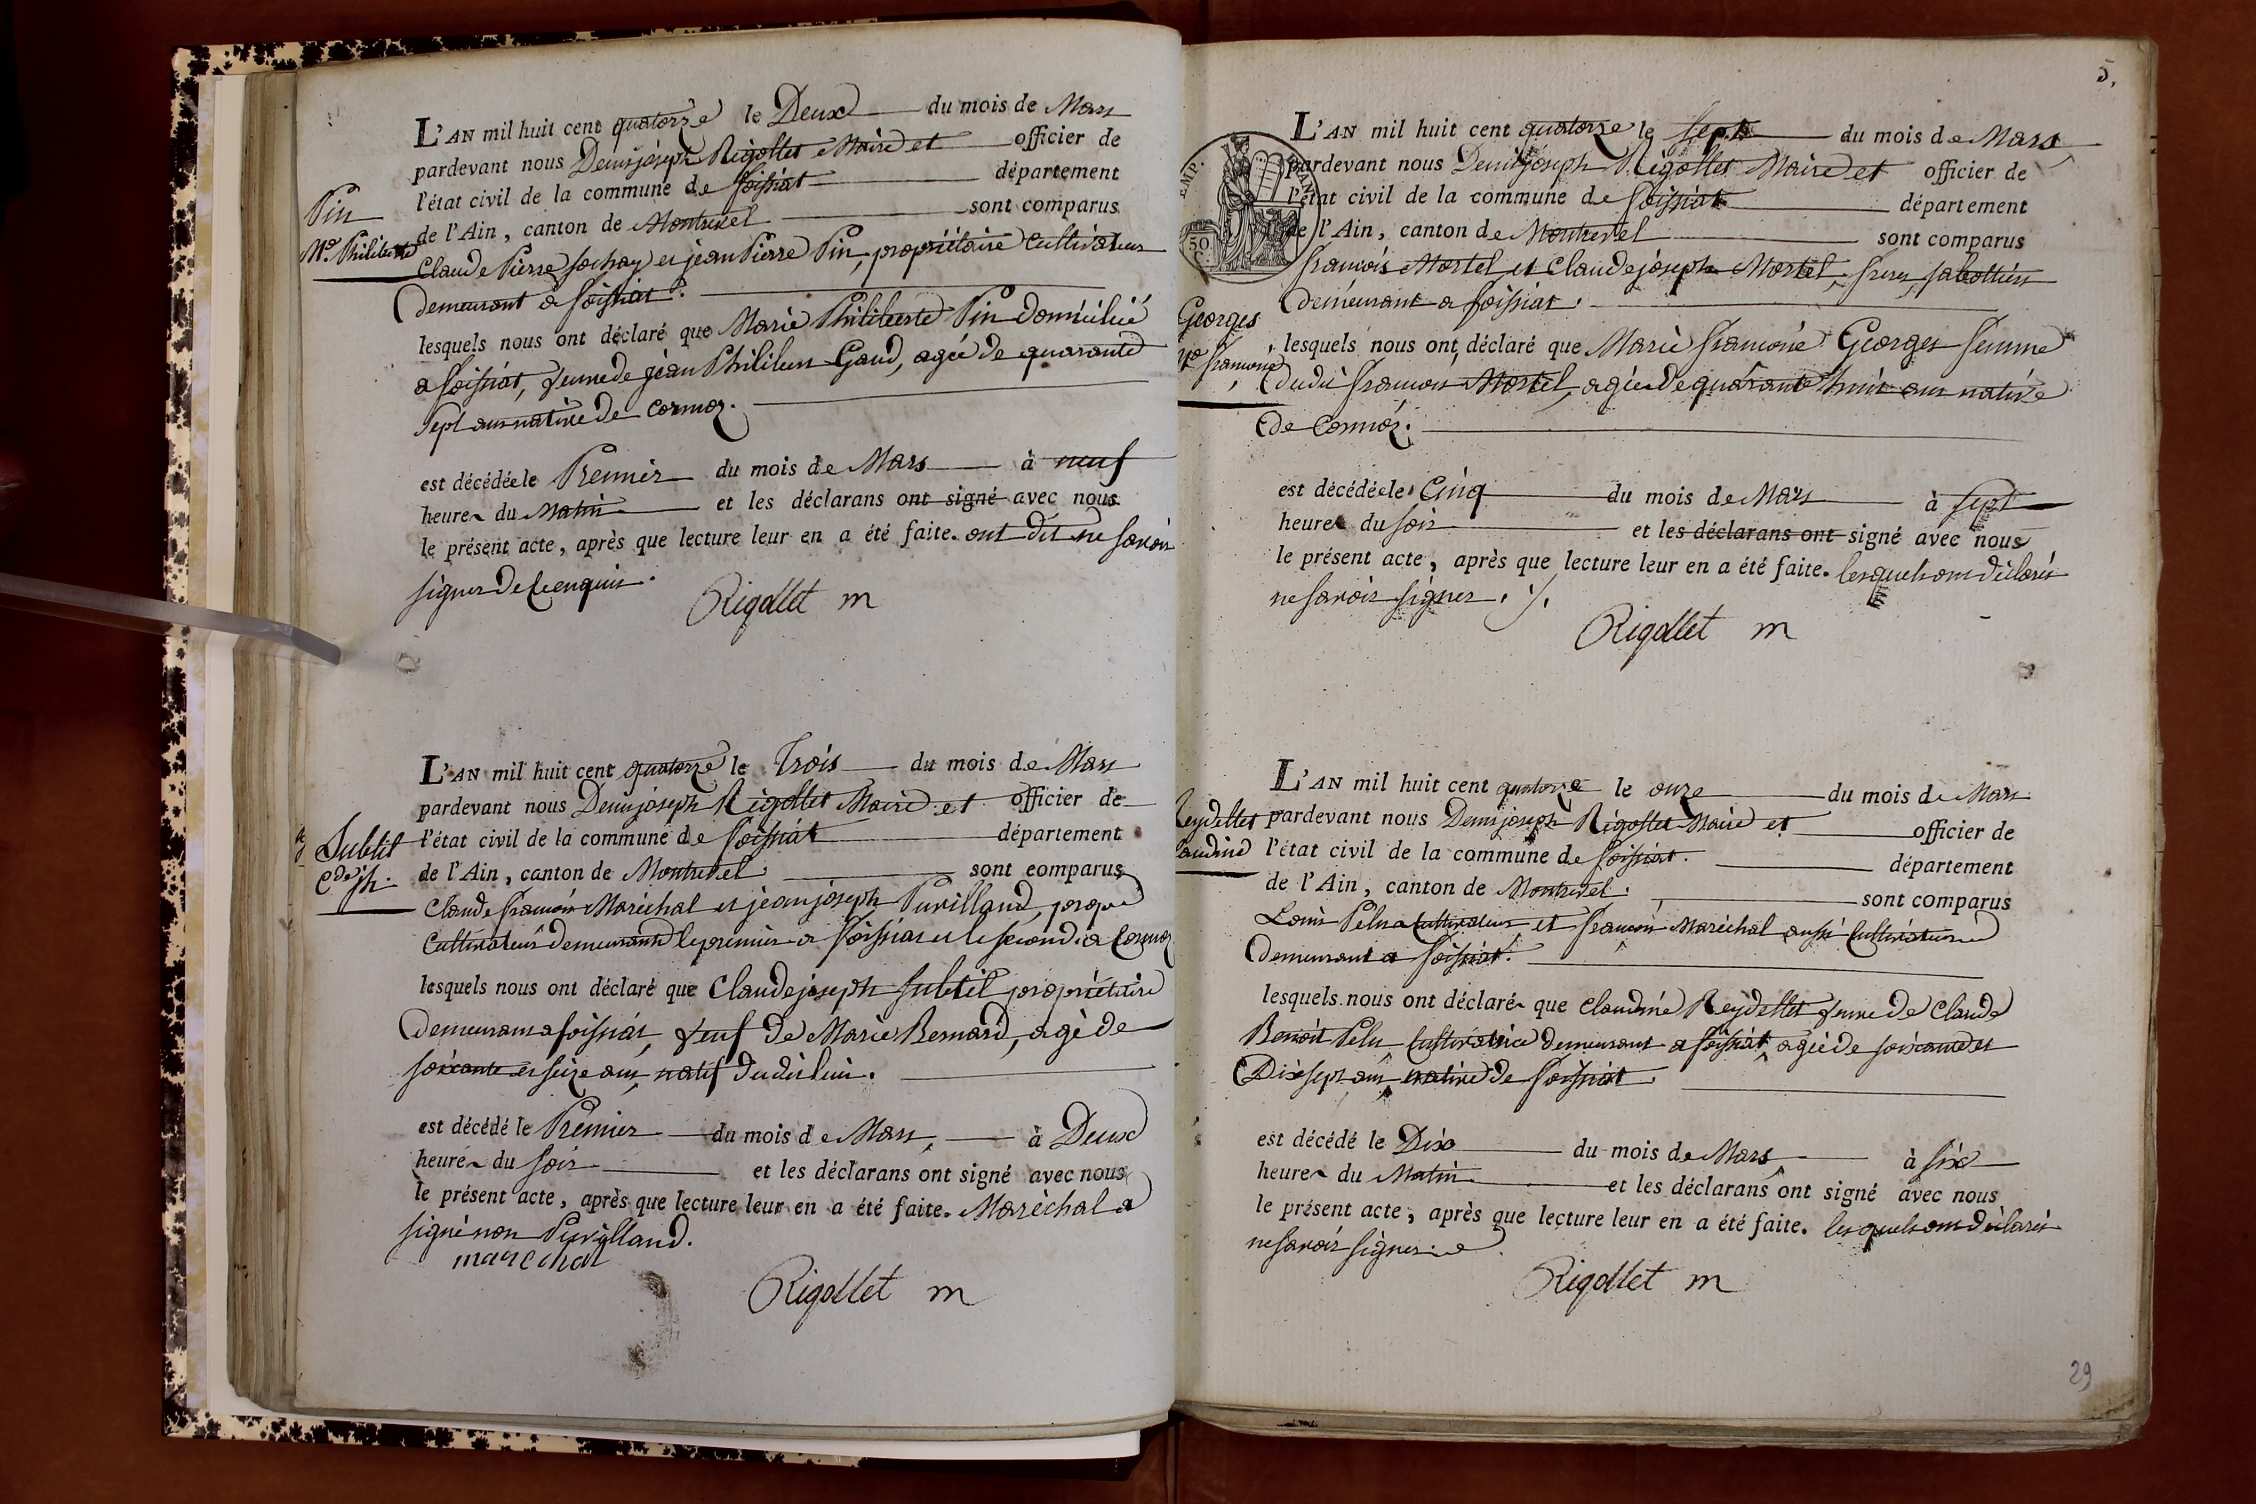 L'AN mil huit cent quatorze le Deux du mois de Mars
pardevant nous Denisjoseph Rigollet Maire et officier de
l'état civil de la commune de foissiat département
de l'Ain, canton de Montrevel sont comparus
Pin
Me. Philiberte
Claude Pierre Sochay et jean Pierre Pin, propriétaire Cultivateurs
demeurant a foissiat.
lesquels nous ont déclaré que Marie Philiberte Pin domicilié
a foissiat, veuve de jean Philibert Gaud, agée de quarante
Sept ans native de Cormoz.
est décédée le Premier du mois de Mars à neuf
heures du Matin et les déclarans ont signé avec nous
le présent acte, après que lecture leur en a été faite. ont dit ne savoir
signer de ce enquis.
Rigollet m
L'AN mil huit cent quatorze le Trois du mois de Mars
pardevant nous Denisjoseph Rigollet Maire et officier de
l'état civil de la commune de foissiat département
de l'Ain, canton de Montrevel sont comparus
Subtil
Cde jh.
Claude françois Maréchal et jeanjoseph Puvilland, 
Cultivateurs demeurant le premier a foissiat et le second a Cormoz
lesquels nous ont déclaré que Claudejoseph subtil propriétaire
demeurant a foissiat, veuf de Marie Bernard, agé de
soixante et seize ans, natif dudit lieu.
est décédé le Premier du mois de Mars, à Deux
heures du soir et les déclarans ont signé avec nous
le présent acte, après que lecture leur en a été faite. Maréchal a
signé non Puvilland.
marechal
Rigollet m
5.
L'AN mil huit cent quatorze le sept du mois de Mars
pardevant nous Denisjoseph Rigollet Maire et officier de
l'état civil de la commune de foissiat département
de l'Ain, canton de Montrevel sont comparus
françois Mortel et Claudejoseph Mortel, freres, sabottiers
demeurant a foissiat.
Georges
Me françoise
lesquels nous ont déclaré que Marie françoise Georges femme
dudit françois Mortel, agée de quarante huit ans native
de Cormoz.
est décédée le Cinq du mois de Mars à sept
heures du soir et les déclarans ont signé avec nous
le présent acte, après que lecture leur en a été faite. lesquels ont déclarés
ne savoir signer.
Rigollet m
L'AN mil huit cent quatorze le onze du mois de Mars
pardevant nous Denisjoseph Rigollet Maire et officier de
l'état civil de la commune de foissiat. département
de l'Ain, canton de Montrevel. sont comparus
Reydellet
Claudine
Louis Pelus Cultivateur et françois Maréchal aussi Cultivateur
demeurant a foissiat.
lesquels nous ont déclarés que Claudine Reydellet femme de Claude
Benoit Pelus, Cultivatrice demeurant a foissiat, agée de soixante et
Dixsept ans, native de foissiat.
est décédé le Dix du mois de Mars, à six
heures du Matin et les déclarans ont signé avec nous
le présent acte, après que lecture leur en a été faite. lesquels ont déclarés
ne savoir signer.
Rigollet m
29